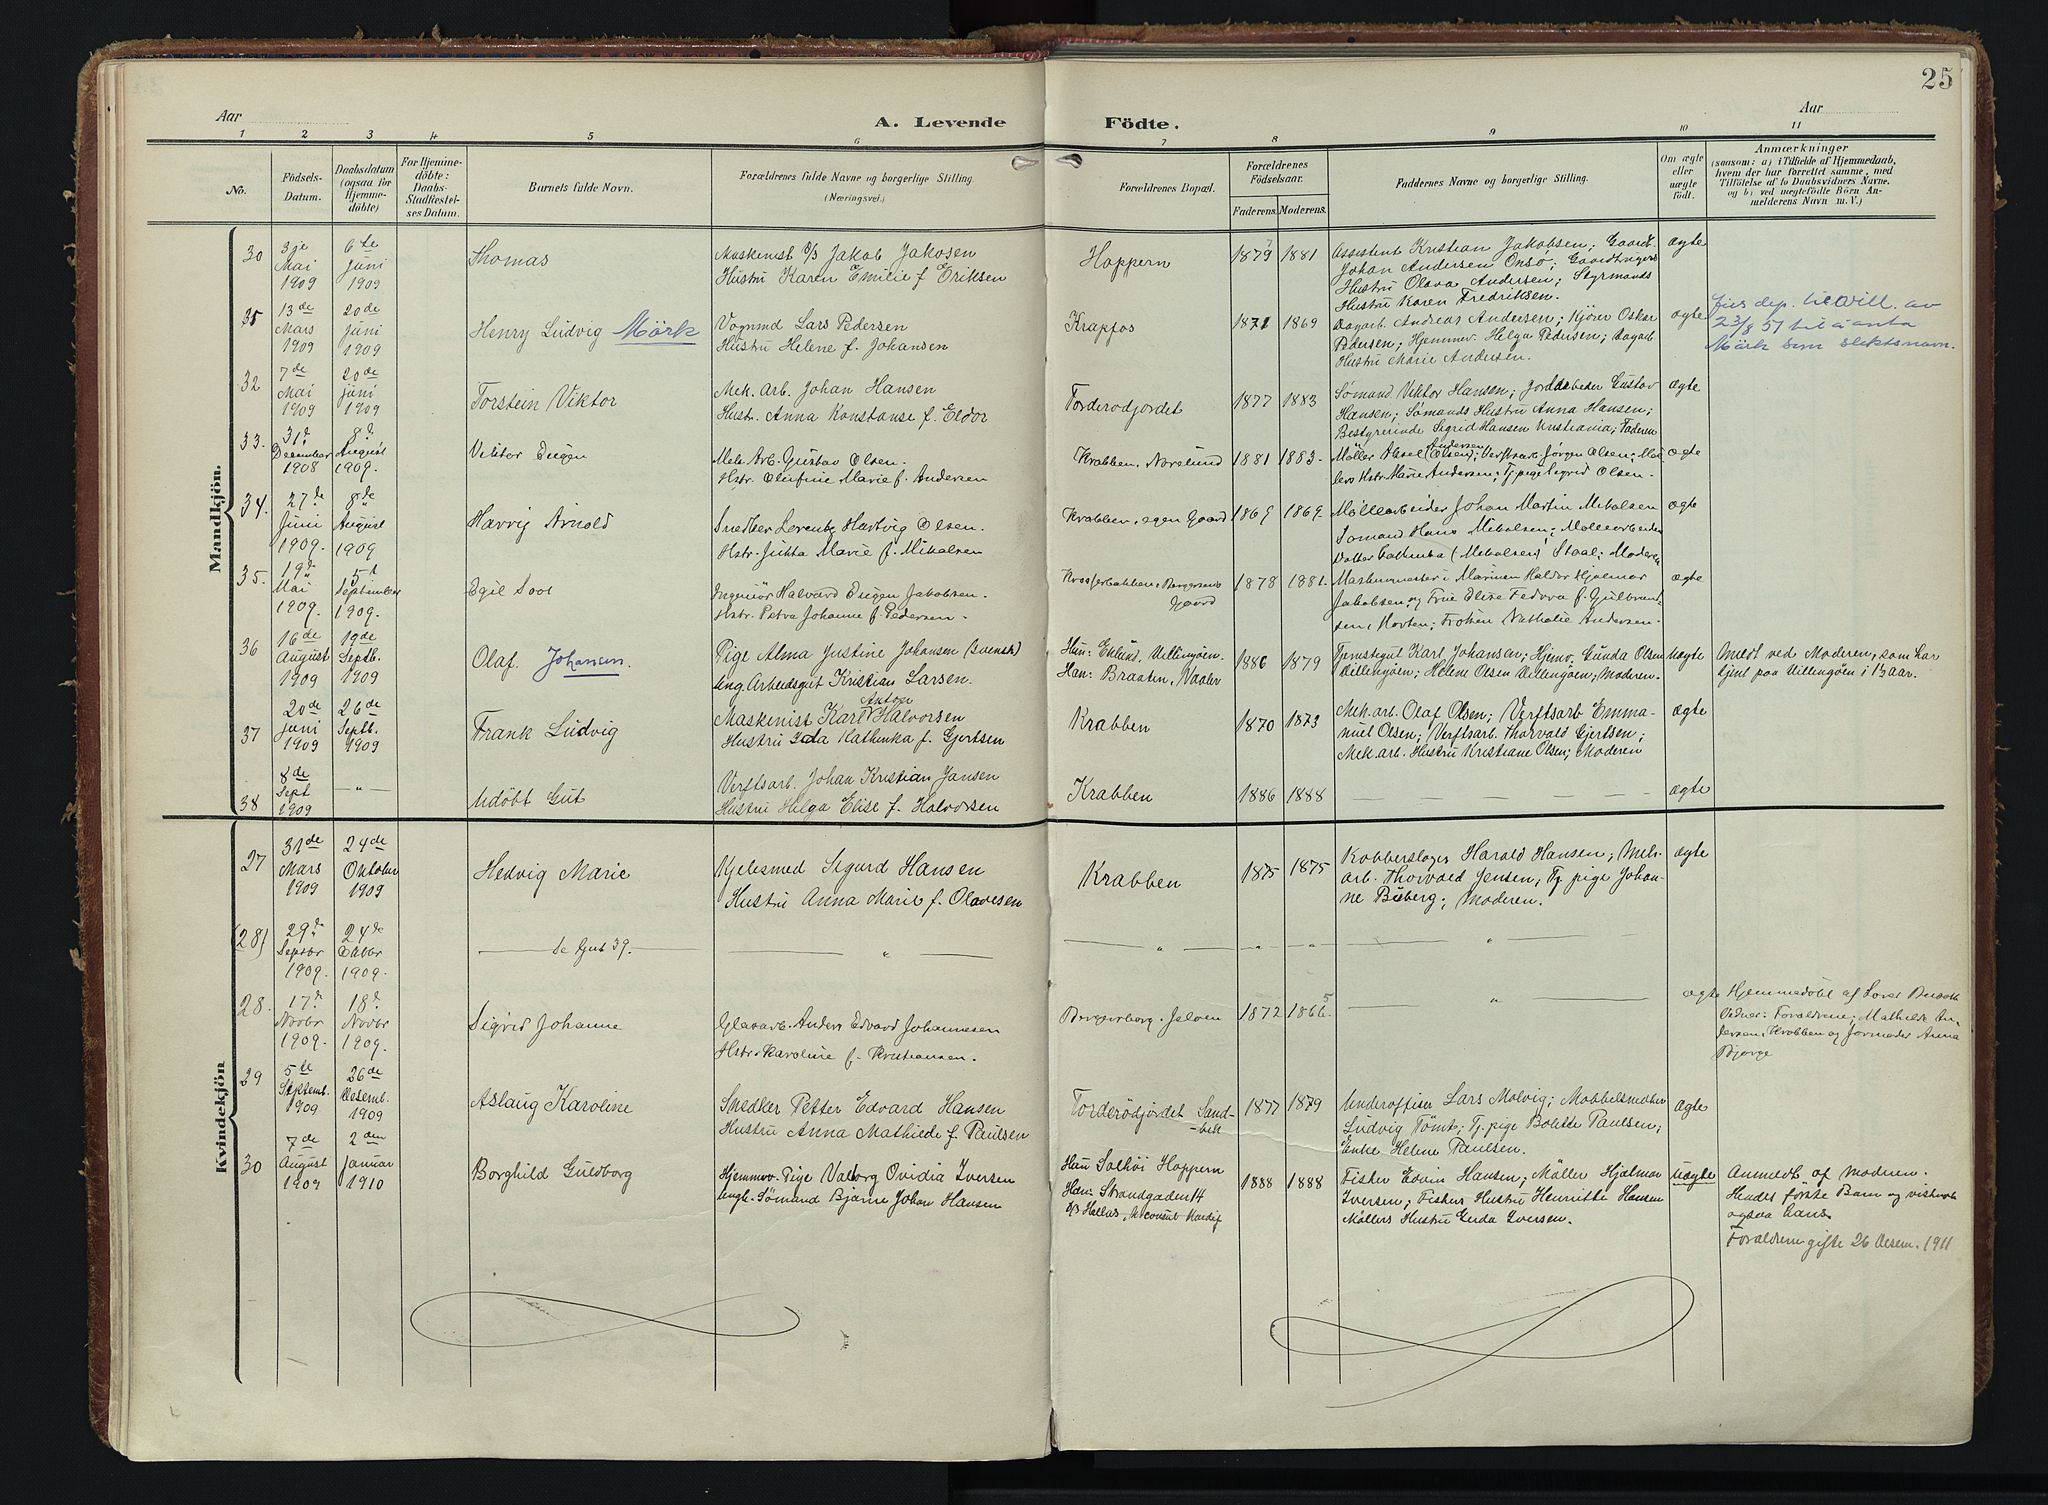 25
Aar
A. Levende Födte.
Aar
1 2 3 4 5 6 7 8 9 10 11
No.
Födsels-
Datum.
Daabsdatum
(ogsaa for
Hjemme-
döbte)
For Hjemme-
döbte:
Daabs-
Stadfæstel-
ses Datum.
Barnets fulde Navn.
Forældrenes fulde Navne og borgerlige Stilling.
(Næringsvei.)
Forældrenes Bopæl.
Forældrenes
Födselsaar.
Faderens. Moderens.
Faddernes Navne og borgerlige Stilling.
Om ægte
eller
uægte
födt.
Anmærkninger
(saasom: a) i Tilfælde af Hjemmedaab,
hvem der har forrettet samme, med
Tilföielse af to Daabsvidners Navne,
og b) ved uægtefödte Börn An-
melderens Navn m. V.)
Mandkjön.
30
3je
Mai
1909
6te
Juni
1909
Thomas
Maskinist Jakob Jakosen
Hustru Karen Emilie f Eriksen
Hoppern
1879 1881
Assistent Kristian Jakobsen; Gaardb.
Johan Andersen Onsö; Gaardbrugers
Hustru Olava Andersen; Styrmands
Hustru Karen Fredriksen.
ægte
13de
Mars
1909
20de
Juni
1909
Henry Ludvig Mörk
Vognmd Lars Pedersen
Hustru Helene f. Johansen
Krapfos
1871 1869
Dagarb. Andreas Andersen; Kjörer Oskar
Pedersen; Hjemmev. Helga Pedersen; Dagarb.
Hustru Marie Andersen.
ægte
Jus. dep. bevill. av
23/8 51 til å anta
Mörk som slektsnavn.
32
7de
Mai
1909
20de
Juni
1909
Torstein Viktor
Mek. Arb. Johan Hansen
Hustr. Anna Konstanse f. Eldor
Torderödjordet
1877 1883
Sömand Viktor Hansen; Jordarbeder Gustav
Hansen; Sömands Hustru Anna Hansen;
Bestyrerinde Sigrid Hansen Kristiania; Faderen
ægte
33.
31.
December
1908
8d.
August
1909.
Viktor Eugen
Mek. Arb. Gustav Olsen.
Hstr. Olufine Marie f. Andersen
Krabben. Norelund
1881 1883.
Möller Aksel Andersen (Olsen); Verftsarb. Jörgen Olsen; Möl-
lers Hstr. Marie Andersen; Tj.pige Sigrid Olsen.
ægte
34.
27de
Juni
1909.
8de
August
1909.
Harvig Arnold
Snedker Lorentz Hartvig Olsen.
Hstr. Jutta Marie f. Mikalsen
Krabben, egen Gaard
1869 1869.
Möllearbeider Johan Martin Mikalsen
Sömand Hans Mikalsen; Möllearbeider
Datter Cathinka (Mikalsen) Staal; Moderen
ægte
35.
19de
Mai
1909.
5t
September
1909.
Egil Soot
Ingeniör Halvard Eugen Jakobsen.
Hstr. Petra Johanne f. Pedersen.
Krosserbakken, Borgersens
Gaard
1878 1881.
Maskinmester i Marinen Haldor Hjalmar
Jakobsen og Frue Elise Fedova f. Gulbrand-
sen, Horten; Fröken Nathalie Andersen.
ægte
36
16de
August
1909
19de
Septb.
1909
Olaf. Johansen.
Pige Alma Justine Johansen (Svensk)
Ung. Arbeidsgut Kristian Larsen.
Hun: Eklund, Villingöen.
Han: Braaten, Vaaler
1886 1879
Tjenestegut Karl Johansen; Hjemv. Gunda Olsen
Villingöen; Helene Olsen Villingöen; Moderen.
Uægte
Meldt ved Moderen, som har
tjent paa Villingöen i 1½ aar.
37
20de
Juni
1909
26de
Septb.
1909
Frank Ludvig
Maskinist Karl Anton Halvorsen
Hustru Ida Kathinka f. Gjertsen
Krabben
1870 1873
Mek. arb. Olaf Olsen; Verftsarb. Emma-
nuel Olsen; Verftsarb. Thorvald Gjertsen;
Mek. arb. Hustru Kristiane Olsen; Moderen
ægte
38
8de
Sept
1909
— „ —
Udöbt Gut
Verftsarb. Johan Kristian Jansen
Hustru Helga Elise f. Halvorsen
Krabben
1886 1888
ægte
Kvindekjön
27
31de
Mars
1909
24de
Oktober
1909
Hedvig Marie
Kjelesmed Sigurd Hansen
Hustru Anna Marie f. Olavesen
Krabben
1875 1875
Kobberslager Harald Hansen; Mek.
arb. Thorvald Jensen; Tj. pige Johan-
ne Buberg; Moderen.
ægte
(28)
29de
Septbr
1909.
24de
Oktbr
1909.
Se Gut 39.
28.
17d
Novbr
1909.
18d.
Novbr
1909.
Sigrid Johanne
Glasarb. Anders Edvard Johannesen
Hstr. Karoline f. Kristiansen.
Berger­borg. Jelöen
1872 1866 5
ægte
Hjemmedöbt af
Vidner: Forældrene; Mathilde An-
dersen, Krabben og Jormoder Anna
Bjorge
29
5te
Septemb.
1909
26de
Desemb.
1909
Aslaug Karoline
Snedker Petter Edvard Hansen
Hustru Anna Mathilde f. Paulsen
Torderödjordet Sand-
-bek
1877 1879
Underoffiser Lars Molvig; Möbbelsnedker
Ludvig Tömt; Tj. pige Bolette Paulsen;
Enke Helene Paulsen.
ægte
30
7de
August
1909
2den
Januar
1910
Borghild Guldborg
Hjemmev. Pige Valborg Ovidia Iversen
Ungk. Sömand Bjarne Johan Hansen
Hun Solhöi Hoppern
Han: Strandgaden 14
1888 1888
Fisker Edvin Hansen; Möller Hjalmar
Iversen; Fiskers Hustru Henriette Hansen
Möllers Hustru Gerda Iversen.
uægte
Anmeldt af moderen.
Hendes förste Barn og vistnok
ogsaa hans.
Forældrene gifte 26 Desem. 1911